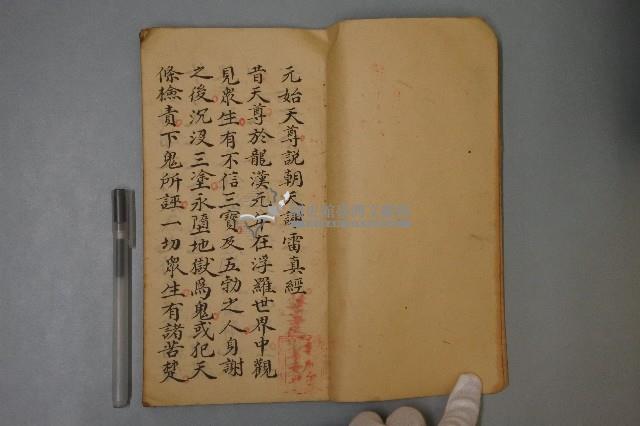 元始天尊說朝天謝雷真經
昔天尊於龍漢元年在浮羅世界中觀
見眾生有不信三寶及五勃之人身謝
之後沉沒三塗永墮地獄為鬼或犯天
條檢責下鬼所誣一切眾生有諸苦楚